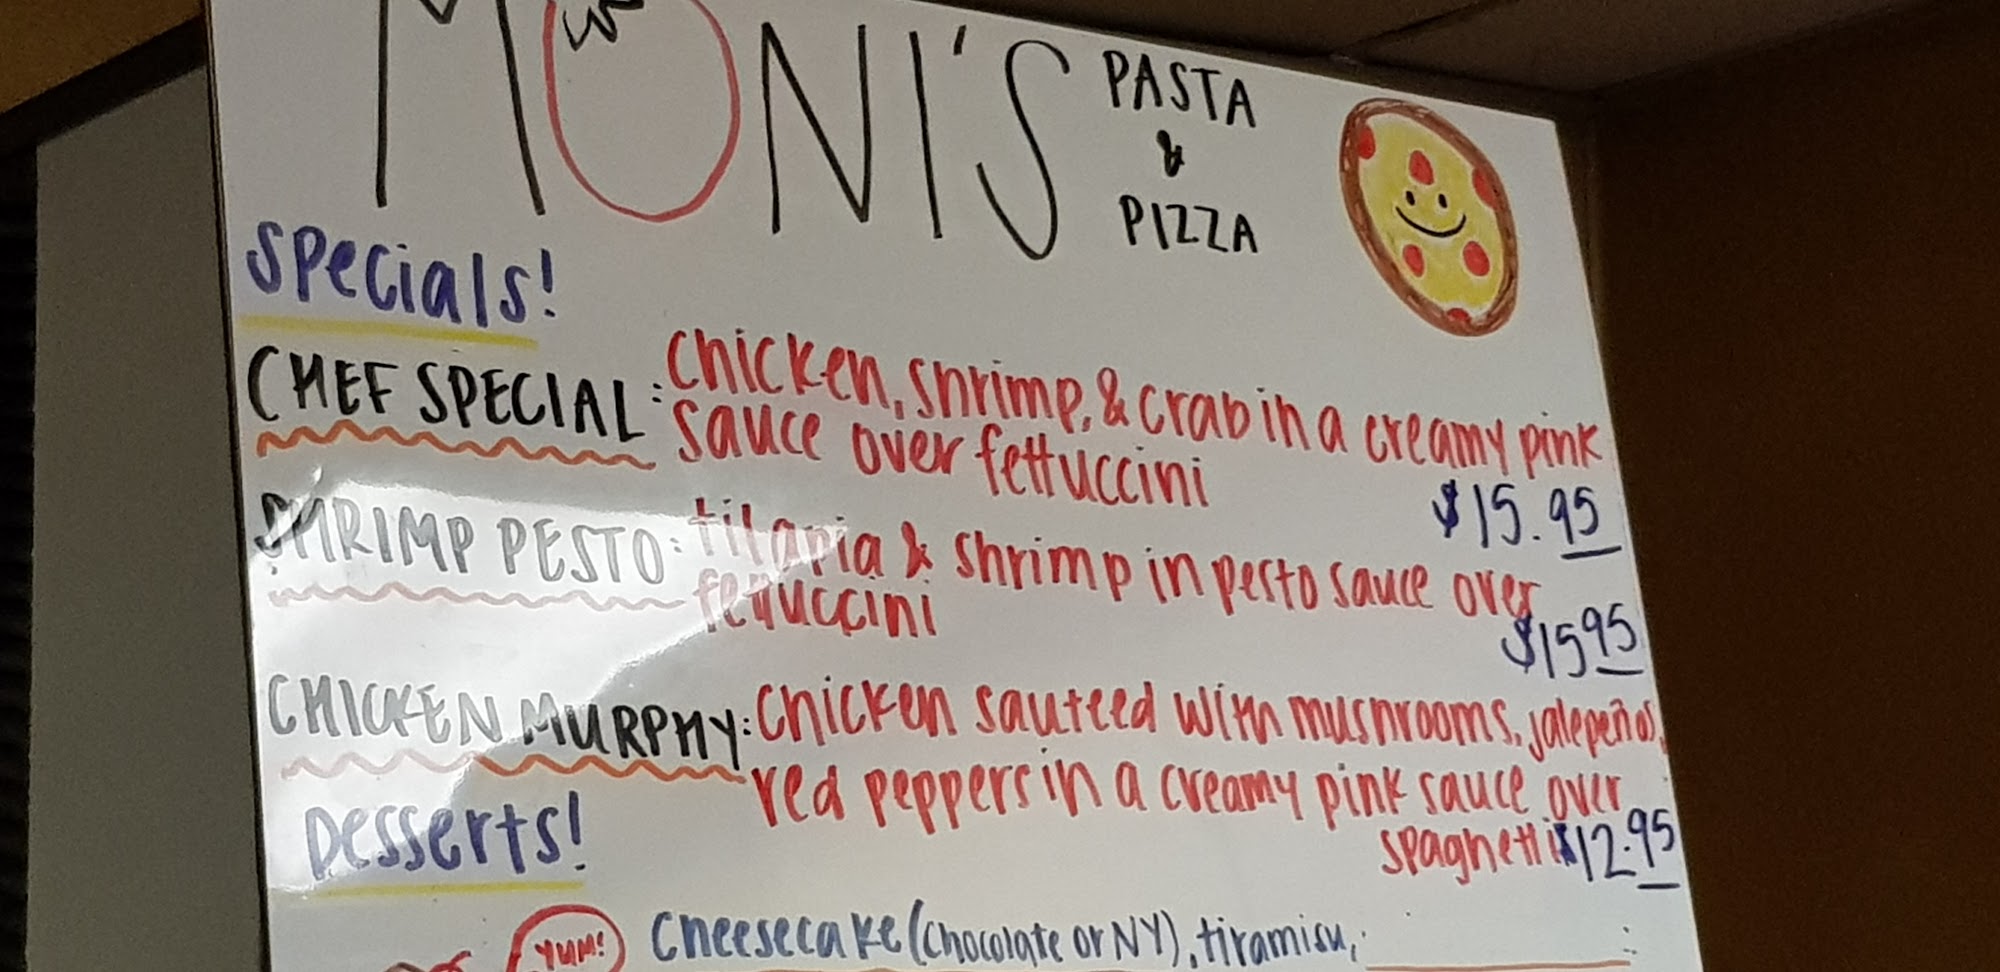 MONI'S
PASTA
&
PIZZA
Specials!
CHEF SPECIAL: Chicken, shrimp, & crab in a creamy pink
sauce over fettuccini
$15.95
SHRIMP PESTO: tilapia & shrimp in pesto sauce over
fettuccini
$15 95
CHICKEN MURPHY: Chicken sauteed with mushrooms, jalepeños,
red peppers in a creamy pink sauce over
spaghetti $12.95
Desserts!
YUM!
Cheesecake (chocolate or NY), tiramisu,